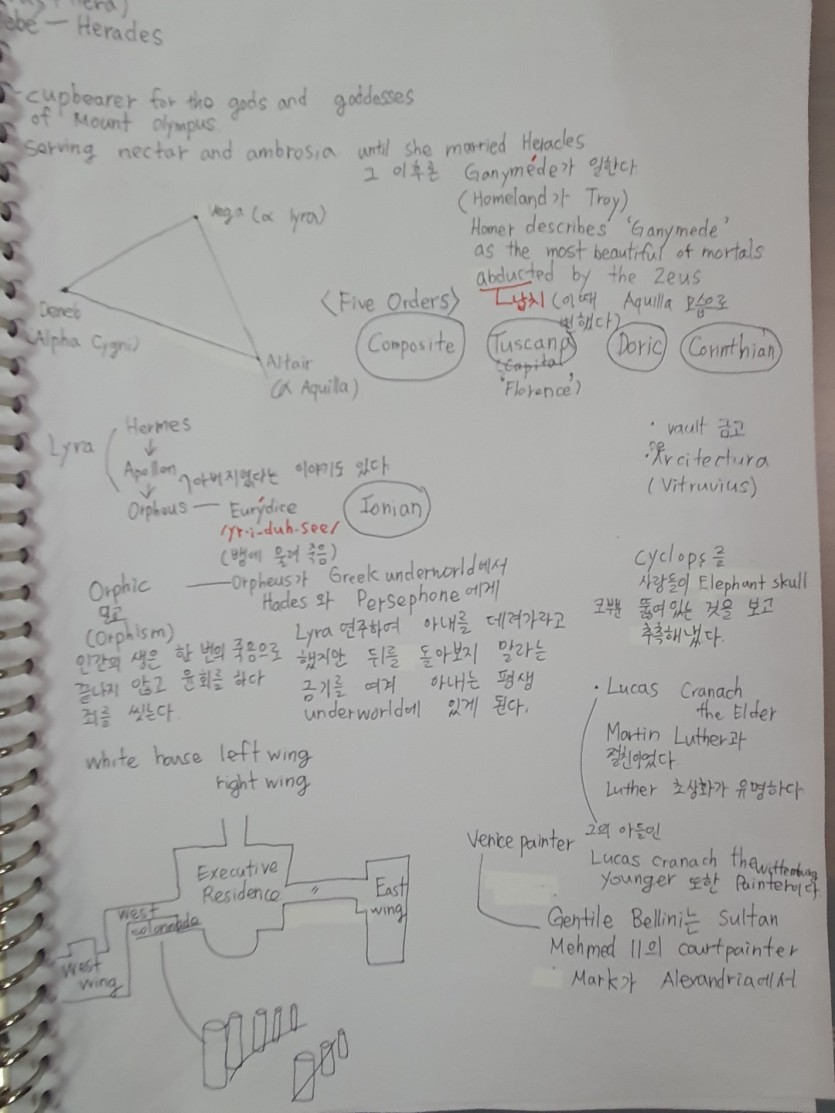 Hebe — Herades
-cupbearer for the gods and goddesses
of Mount olympus.
serving nectar and ambrosia until she married Heracles
그 이후론 Ganyméde가 일한다
(Homeland가 Troy)
Homer describes 'Ganymede'
as the most beautiful of mortals
abducted by the Zeus
납치 (이때 Aquilla 모습으로
변했다)
Vega (α lyra)
Deneb
(Alpha Cygni)
Altair
(α Aquilla)
<Five Orders>
Composite
Tuscany
Capital
'Florence')
Doric
Corinthian
Lyra
Hermes
↓
Apollon
↓
Orpheus — Eurýdice
아버지였다는 이야기도 있다
/yr-i-duh-see/
(뱀에 물려 죽음)
Ionian
· vault 금고
· Arcitectura
(Vitruvius)
Orphic
밀고
(Orphism)
인간의 생은 한 번의 죽음으로
끝나지 않고 윤회를 하다
죄를 씻는다.
Orpheus가 Greek underworld에서
Hades 와 Persephone에게
Lyra 연주하여 아내를 데려가라고
했지만 뒤를 돌아보지 말라는
금기를 여겨 아내는 평생
underworld에 있게 된다.
Cyclops를
사람들이 Elephant skull
코부분 뚫여있는 것을 보고
추측해냈다.
· Lucas Cranach
the Elder
Martin Luther과
절친이었다
Luther 초상화가 유명하다
그의 아들인
Lucas cranach the
younger 또한 Painter이다.
white house left wing
right wing
Executive
Residence
East
wing
west
colonnade
west
wing
Venice painter
Gentile Bellini는 Sultan
Mehmed II의 courtpainter
Mark가 Alexandria에서